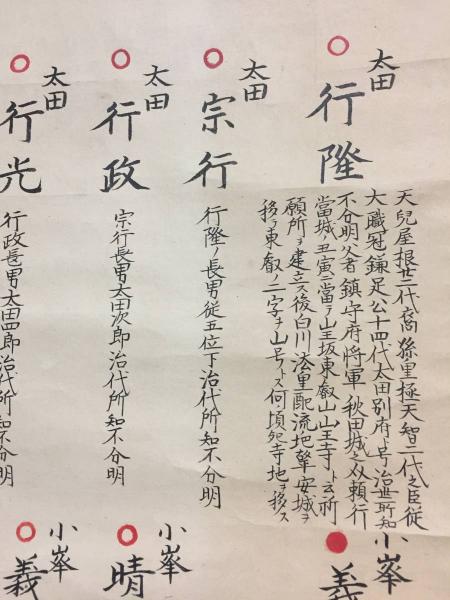 太田
行隆
天兒屋根廿二代裔孫皇極天智二代之臣従
大職冠鎌足公十四代太田別府ト号治世所知
不分明父者鎮守府将軍秋田城之介頼行
當城丑寅ニ當ラ山王坂東叡山山王寺ト云祈
願所ヲ建立ス後白川法皇配流地肇安城ヲ
移ラ東叡ノ二字ヲ山号トス何頃宛寺地ヲ移ス
太田
宗行
行隆ノ長男従五位下治代所知不分明
太田
行政
宗行長男太田次郎治代所知不分明
太田
行光
行政長男太田四郎治代所知不分明
小峯
義
小峯
晴
小峯
義